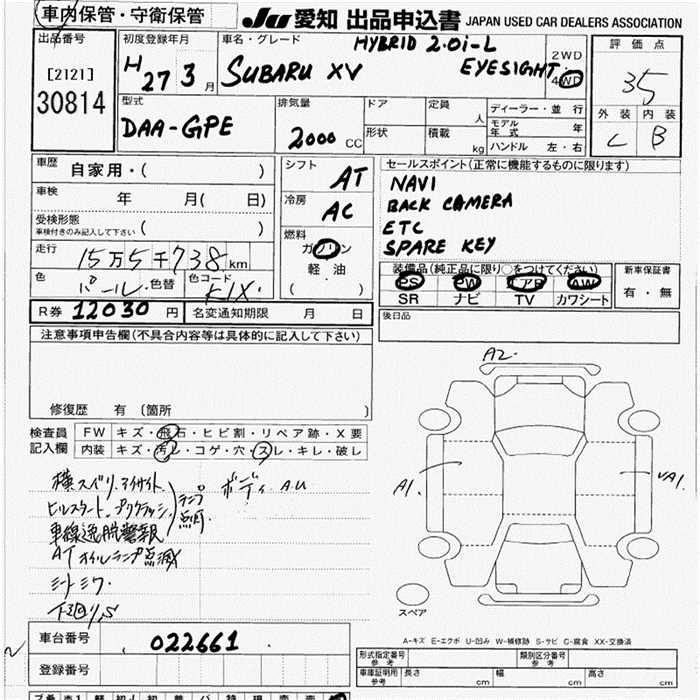 車内保管・守衛保管
JU 愛知 出品申込書 JAPAN USED CAR DEALERS ASSOCIATION
出品番号
[2121]
30814
初度登録年月
H 27 3 月
車名・グレード
HYBRID 2.0i-L
SUBARU XV EYESIGHT
2WD
4WD
評価点
35
外装 内装
C B
型式
DAA-GPE
排気量
2000 CC
ドア
形状
定員 人
積載 kg
ディーラー・並行
モデル年式 年
ハンドル 左・右
車歴 自家用・( )
車検 年 月( 日)
受検形態
車検付きのみ記入して下さい ( )
走行 15万5千738km
色 パール 色替 色コード K1X
シフト AT
冷房 AC
燃料
ガソリン
軽油
( )
セールスポイント(正常に機能するものに限ります)
NAVI
BACK CAMERA
ETC
SPARE KEY
装備品(純正品に限り〇をつけてください)
PS PW エアB AW
SR ナビ TV カワシート
新車保証書
有・無
R券 12030 円 名変通知期限 月 日
後日品
注意事項申告欄(不具合内容等は具体的に記入して下さい)
修復歴 有 (箇所 )
検査員
記入欄
FW キズ・飛石・ヒビ割・リペア跡・X要
内装 キズ・汚レ・コゲ・穴・スレ・キレ・破レ
横スベリ、アイサイト、
ヒルスタート、プリクラッシュ、
車線逸脱警報
ランプ点灯.
ボディ A.U
ATオイルランプ点滅
シートシワ.
下廻りS
A2.
A1.
A1.
スペア
A-キズ E-エクボ U-凹み W-補修跡 S-サビ C-腐食 XX-交換済
車台番号 022661
登録番号
形式指定番号 参考
類別区分番号 参考
車庫証明用 参考 長さ cm 幅 cm 高さ cm